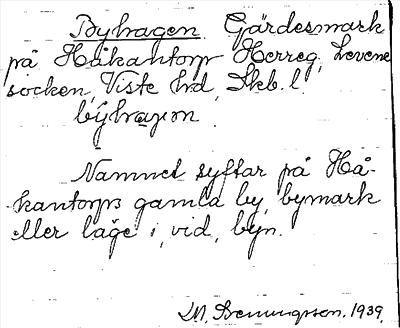 Byhagen Gärdesmark
på Håkantorp Herreg, Levene
socken, Viste hd, Skb. l.
býhaɡən.
Namnet syftar på Hå-
kantorps gamla by, bymark
eller läge i, vid, byn.
M. Benningson. 1939.